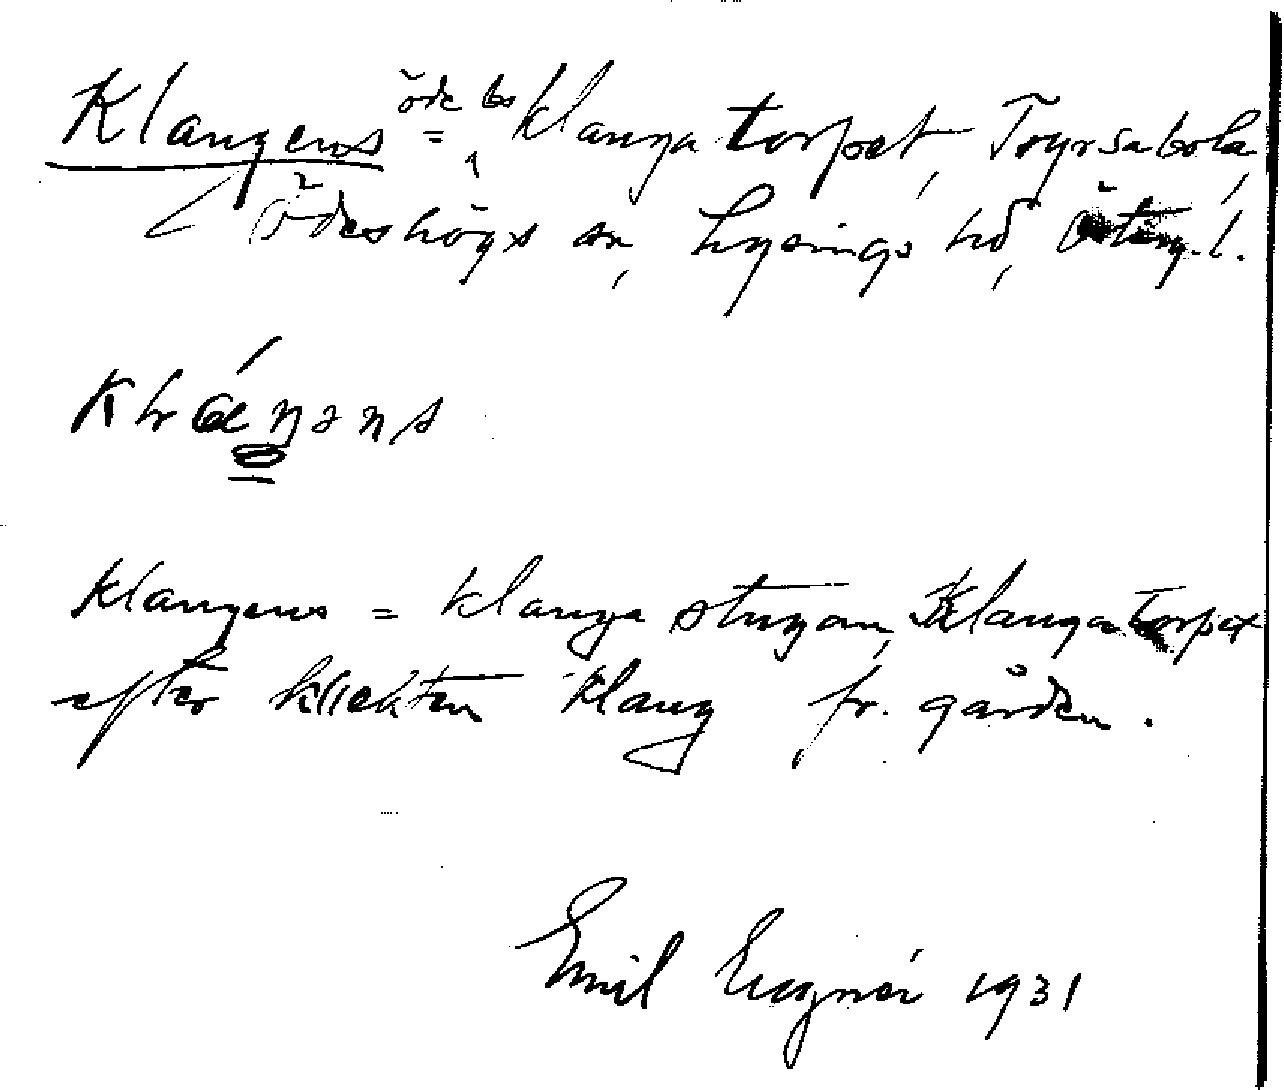 Klangens öde bs = Klangatorpet, Toyrsabola,
Ödeshögs sn, Lysings hd, Östergl.
Klangens = Klanga stugan, Klangatorpet
efter släkten Klang fr. gården.
Emil 1931